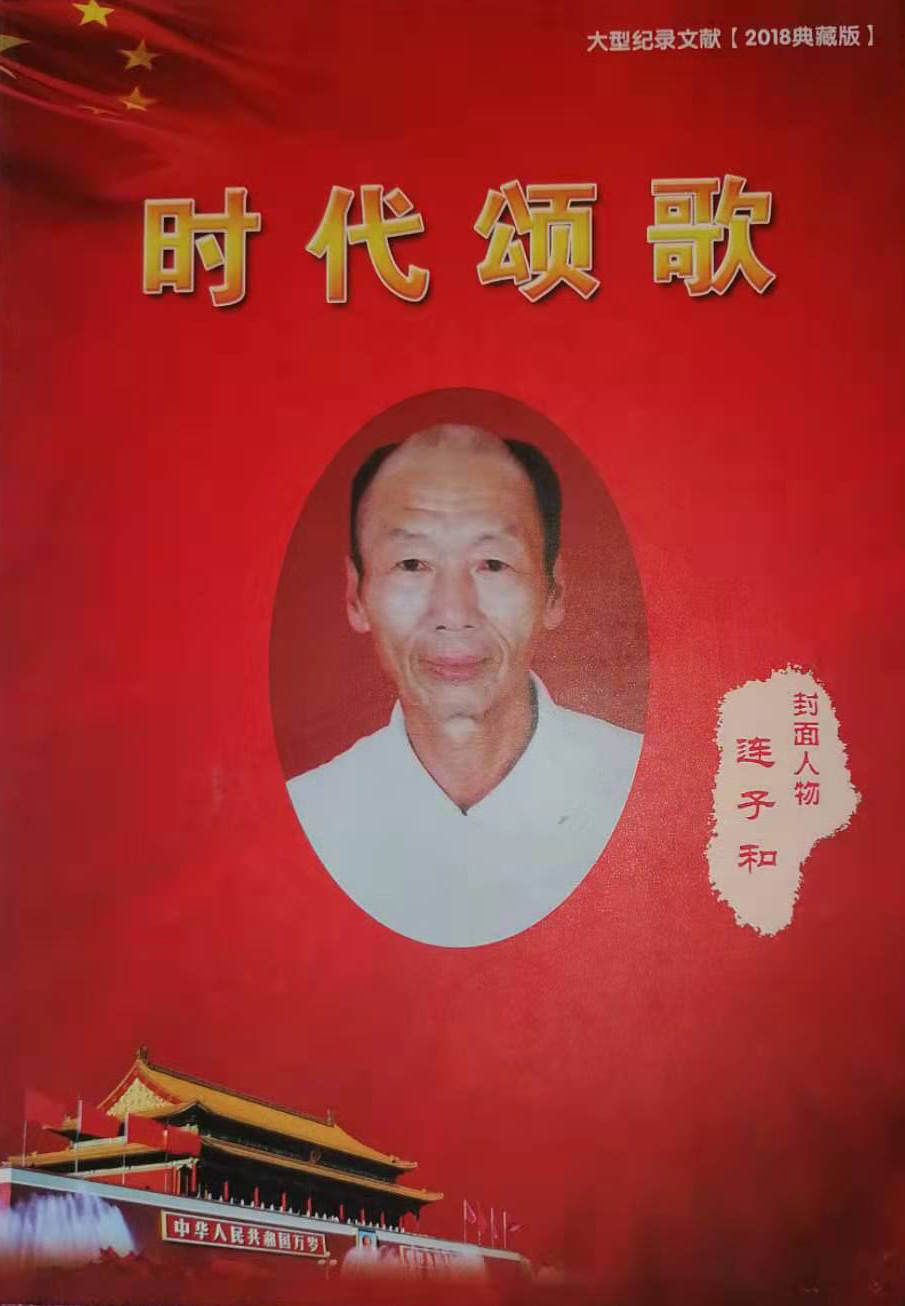 大型纪录文献【2018典藏版】
时代颂歌
封面人物
连子和
中华人民共和国万岁